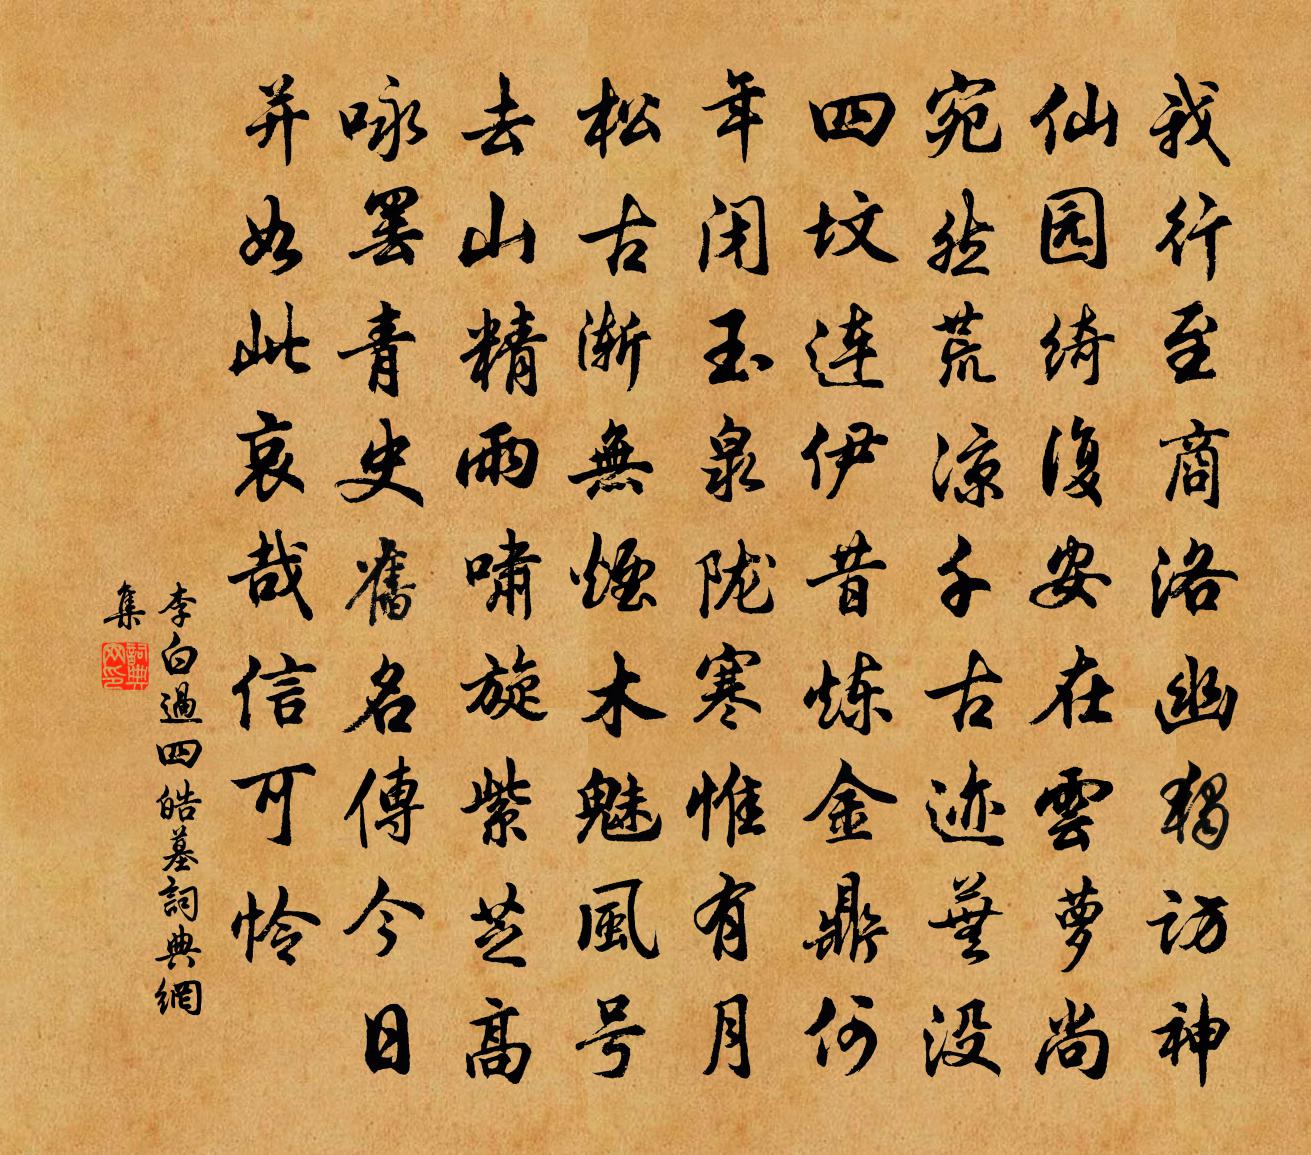 我行至商洛幽独访神
仙园绮復安在雲萝尚
宛然荒凉千古迹芜没
四坟連伊昔炼金鼎何
年闭玉泉陇寒惟有月
松古渐無煙木魅風号
去山精雨啸旋紫芝高
咏罢青史舊名傳今日
并如此哀哉信可怜
李白過四皓墓詞典網
集
詞典
网印